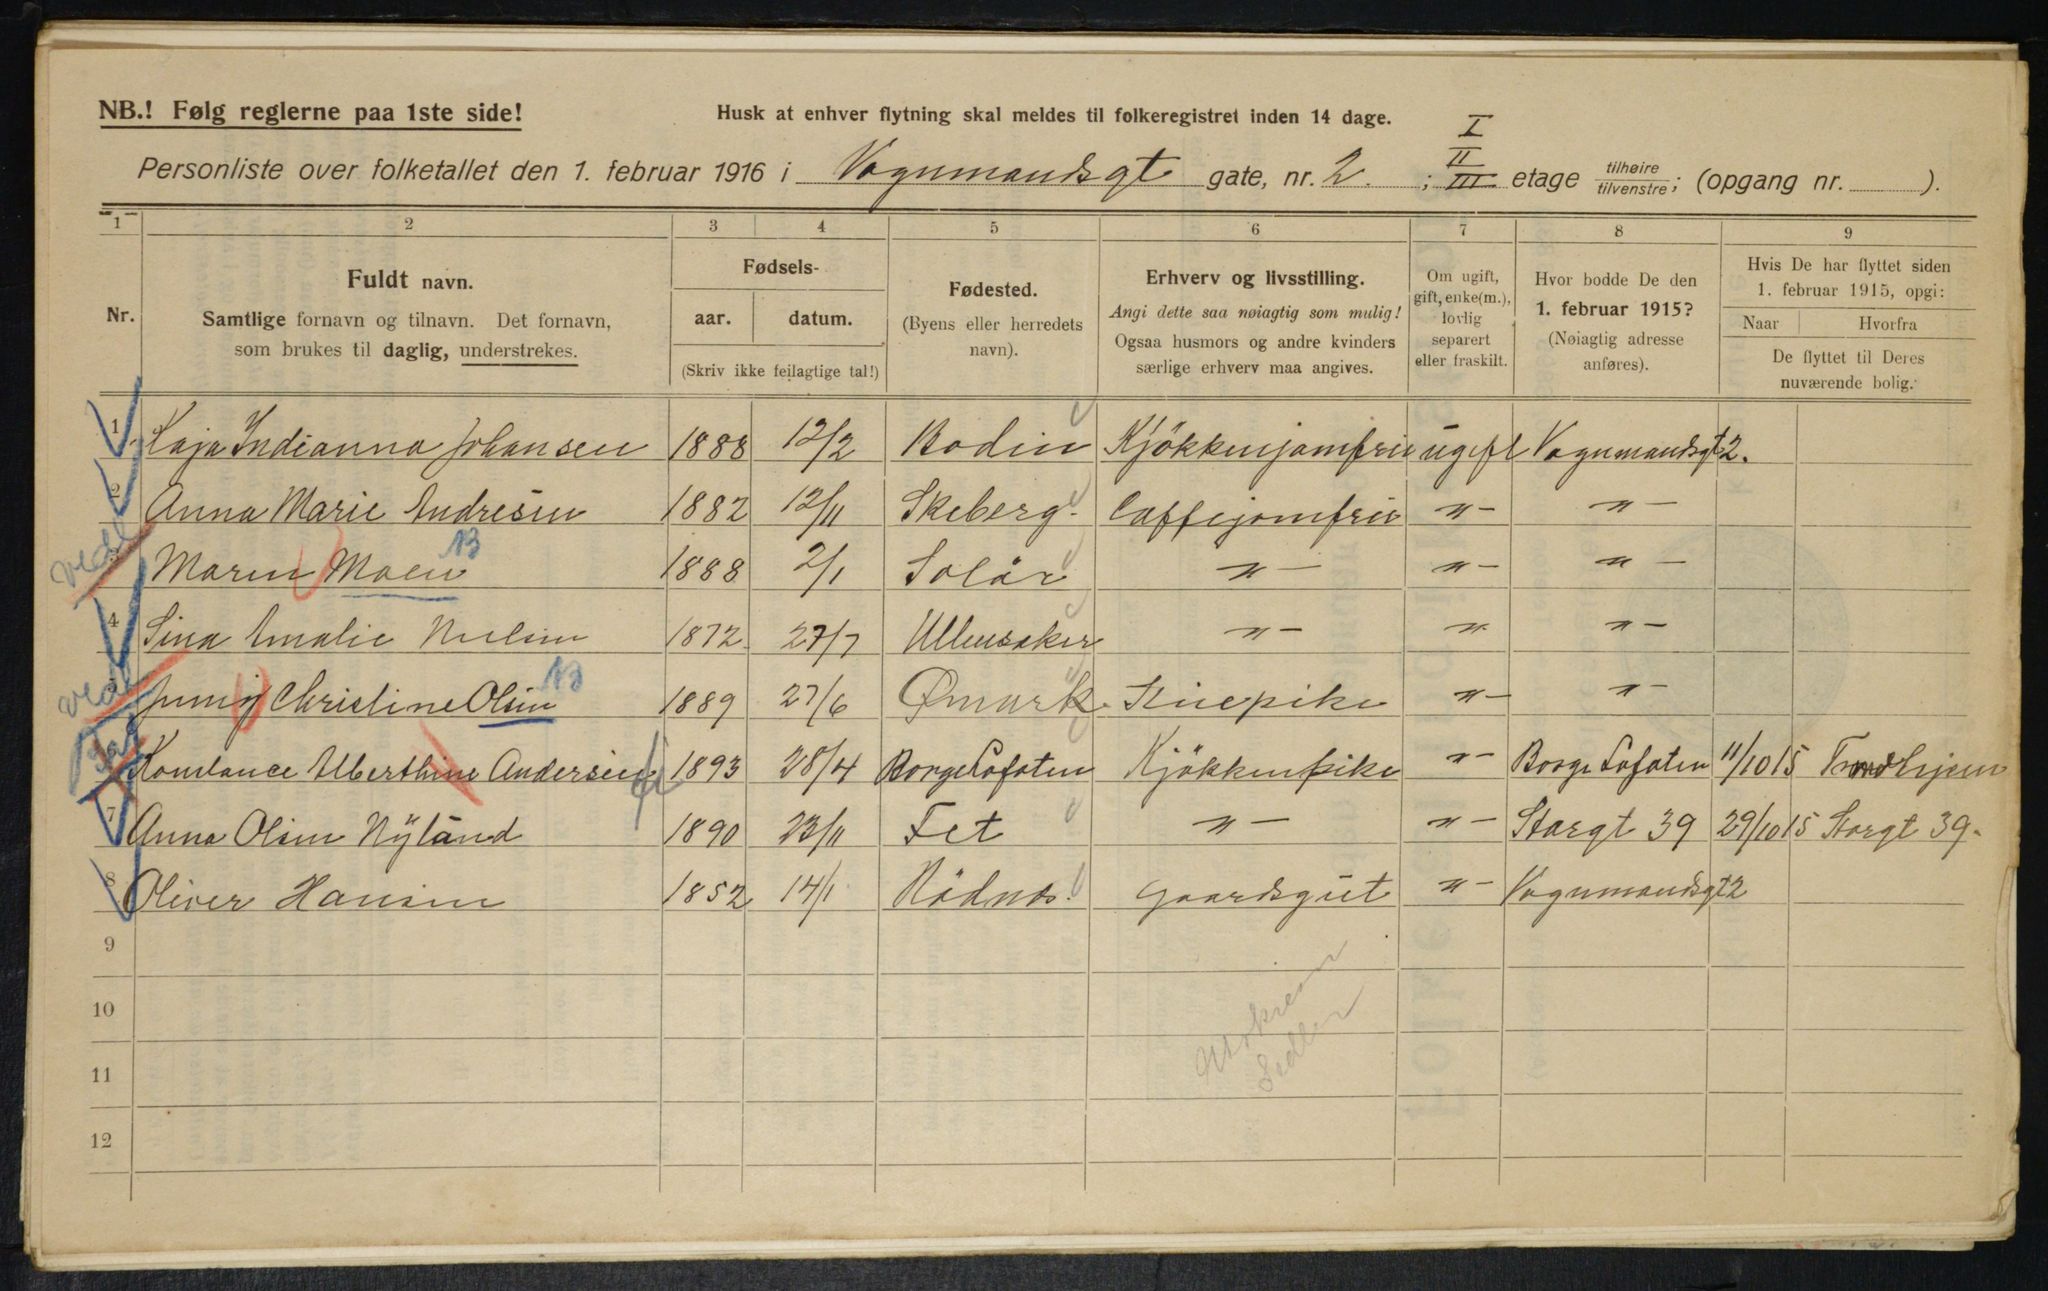 NB.! Følg reglerne paa 1ste side!
Husk at enhver flytning skal meldes til folkeregistret inden 14 dage.
Personliste over folketallet den 1. februar 1916 i Vognmandsgt gate, nr. 2. ; I II III etage tilhøire tilvenstre; (opgang nr. ).
1 2 3 4 5 6 7 8 9
Nr.
Fuldt navn.
Samtlige fornavn og tilnavn. Det fornavn,
som brukes til daglig, understrekes.
Fødsels-
aar. datum.
(Skriv ikke feilagtige tal!)
Fødested.
(Byens eller herredets
navn).
Erhverv og livsstilling.
Angi dette saa nøiagtig som mulig!
Ogsaa husmors og andre kvinders
særlige erhverv maa angives.
Om ugift,
gift, enke(m.),
lovlig
separert
eller fraskilt.
Hvor bodde De den
1. februar 1915?
(Nøiagtig adresse
anføres).
Hvis De har flyttet siden
1. februar 1915, opgi:
Naar Hvorfra
De flyttet til Deres
nuværende bolig.
1 Kaja Indianna Johansen 1888 12/2 Bodin Kjökkenjomfru ugift Vognmandsgt 2.
2 Anna Marie Andresen 1882 12/11 Skeberg Caffejomfru " - " -
3 Maren Moen 1888 2/1 Solör " - " - " -
4 Sina Amalie Nilsen 1872 27/7 Ullensaker " - " - " -
5 Jenny Christine Olsen 1889 27/6 Ømark Stuepike " - " -
6 Konstance Alberthine Andersen 1893 28/4 Borge Lofoten Kjökkenpike " - Borge Lofoten 11/10 15 Trondhjem
7 Anna Olsen Nyland 1890 23/11 Fet " - " - Storgt 39 29/10 15 Storgt 39.
8 Oliver Hansen 1852 14/1 Rödnes Gaardsgut " - Vognmandsgt 2
9
10
11
12